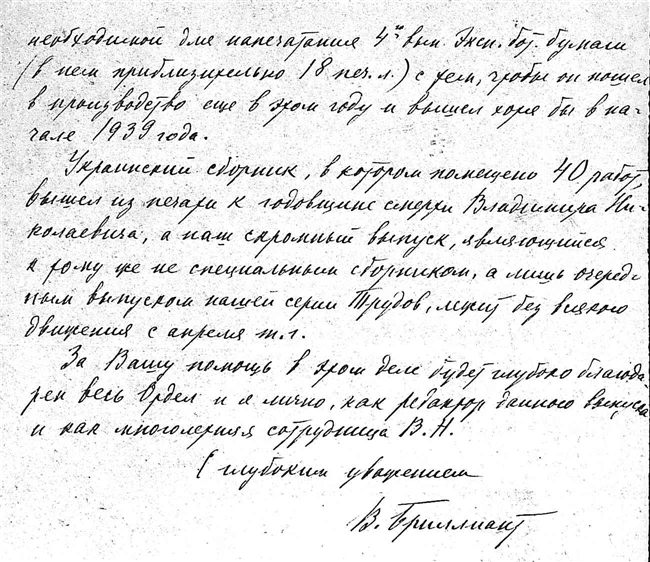 необходимой для напечатания 4го вып. Эксп. бот. бумаги
(в нем приблизительно 18 печ. л.) с тем, чтобы он пошел
в производство еще в этом году и вышел хотя бы в на-
чале 1939 года.
Украинский сборник, в котором помещено 40 работ,
вышел из печати к годовщине смерти Владимира Ни-
колаевича, а наш скромный выпуск, являющийся
к тому же не специальным сборником, а лишь очеред-
ным выпуском нашей серии Трудов, лежит без всякого
движения с апреля т.г.
За Вашу помощь в этом деле будет глубоко благода-
рен весь Отдел и я лично, как редактор данного выпуска
и как многолетняя сотрудница В.Н.
С глубоким уважением
В. Бриллиант